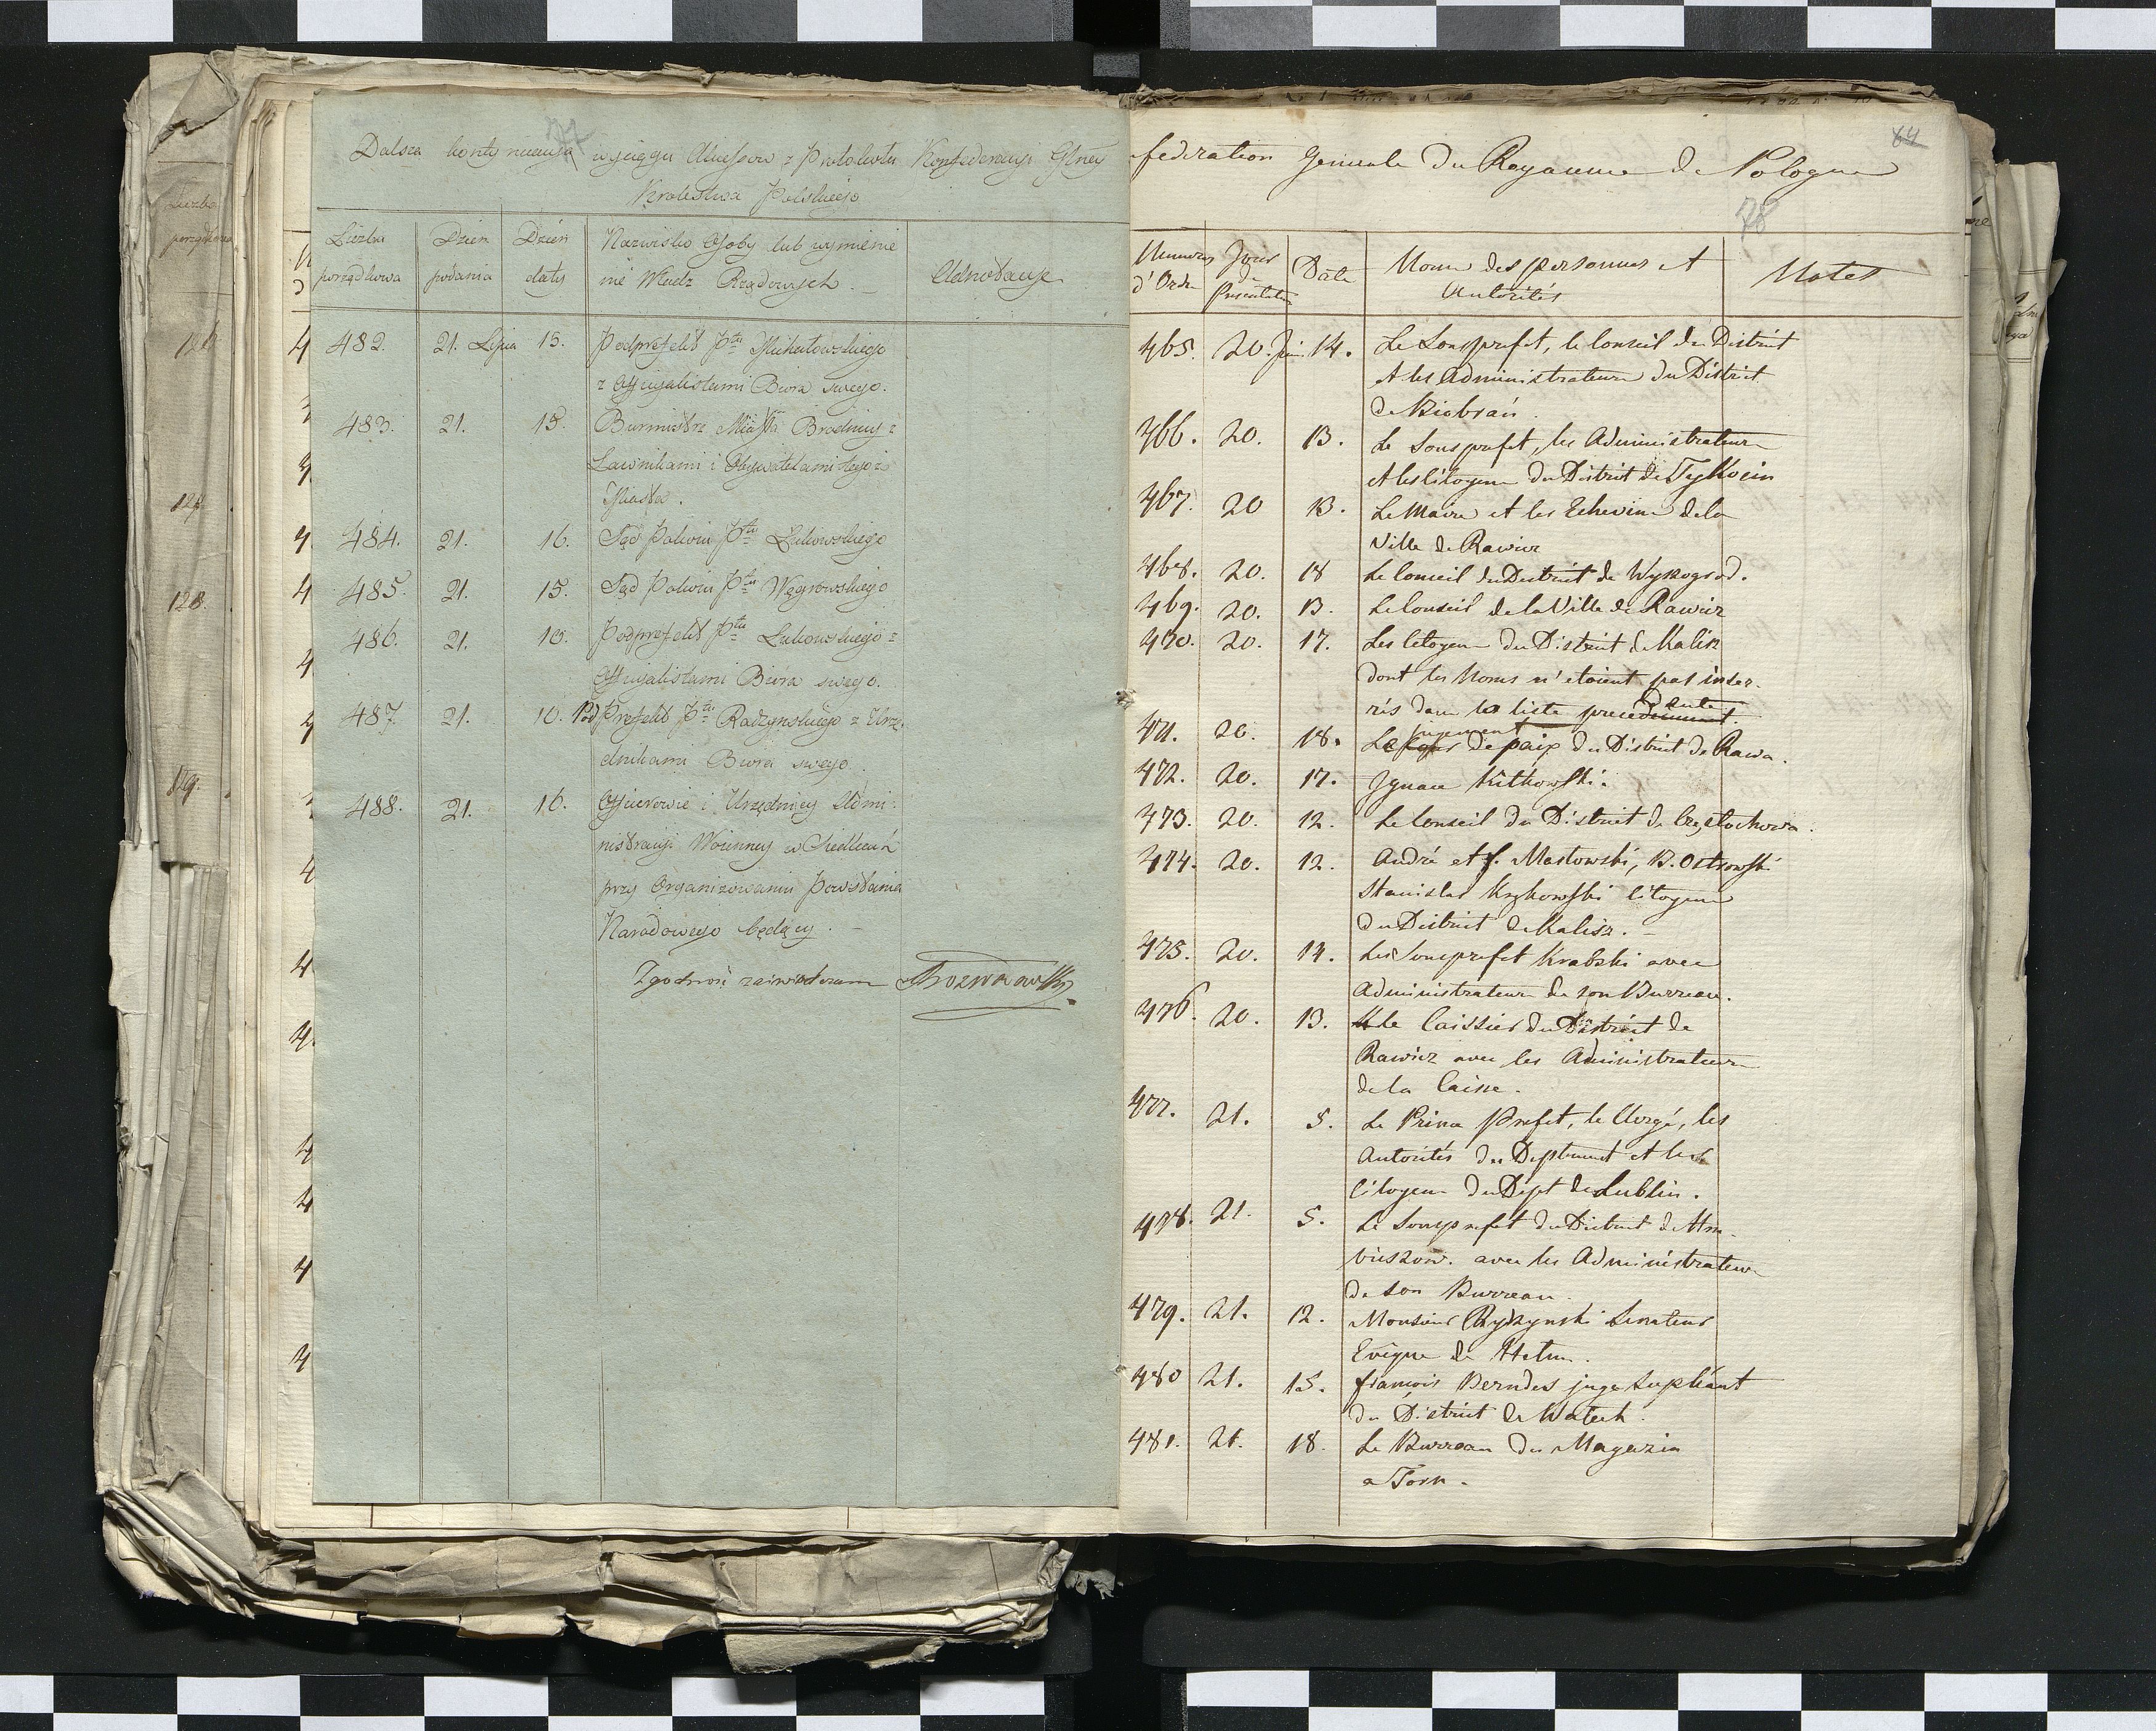 Dalsza kontynuacya wyciągu Akcessow z Protokułu Konfederacyi Glney
Krolestwa Polskiego
77
Liczba porządkowa
Dzień podania
Dzień daty
Nazwisko Osoby lub wymienie
nie Władz Rządowych. —
Adnotacye
482. 21. Lipca 15. Podprefekt Ptu
z Officyalistami Biora swego.
483. 21. 15. Burmistrz Miasta z
Ławnikami i Obywatelami tegoż
Miasta.
484. 21. 16. Sąd Pokoiu Ptu Łukowskiego
485. 21. 15. Sąd Pokoiu Ptu Węgrowskiego
486. 21. 10. Podprefekt Ptu Łukowskiego z
Officyalistami Biora swego.
487. 21. 10. Pod Prefekt Ptu Radzynskiego z Urzę
dnikami Biora swego.
488. 21. 16. Officerowie i Urzędnicy Admi
nistracyi Woienney w Siedlcach
przy Organizowaniu Powstania
Narodowego będący. —
Zgodność zaświadczam
64
fédération Generale du Royaume de Pologne
78
Numeros d'Ordre
Jour de Presentation
Date
Noms des personnes et
Autorités
Notes
465. 20. Juin. 14. Le Sousprefet, le Conseil du District
et les Administrateurs du District
de Biebrań.
466. 20. 13. Le Sousprefet, les Administrateurs
et les Citoyens du District de Tykocin
467. 20 13. Le Maire et les Echevins de la
Ville de Rawicz
468. 20. 18 Le Conseil du District de Wyszogrod.
469. 20. 13. Le Conseil de la Ville de Rawicz
470. 20. 17. Les Citoyens du District de Kalisz
dont les Noms n'etoient pas inser-
rés dans la liste precedente.
471. 20. 18. Le jugement de paix du District de Rawa.
472. 20. 17. Ignace Kitkowski.
473. 20. 12. Le Conseil du District de Częstochowa.
474. 20. 12. André et f. Mastowski, B. Ostrowski
Stanislas Krzkowski Citoyens
du District de Kalisz. —
475. 20. 14. Les Sousprefet Krabski avec
Administrateurs de son Burreau.
476. 20. 13. Le Caissier du District de
Rawicz avec les Administrateurs
de la Caisse.
477. 21. 5. Le Prince Prefet, le Clergé, les
Autorités du Deptement et les
Citoyens du Dept de Lublin.
478. 21. 5. Le Sousprefet du District de Hru-
bieszow. avec les Administrateurs
de son Burreau.
479. 21. 12. Monsieur Senateur
Evêque de Helm.
480 21. 15. françois Berndes juge supléant
du District de
481. 21. 18. Le Burreau du Magazin
a Torn.
126.
127.
128.
129.